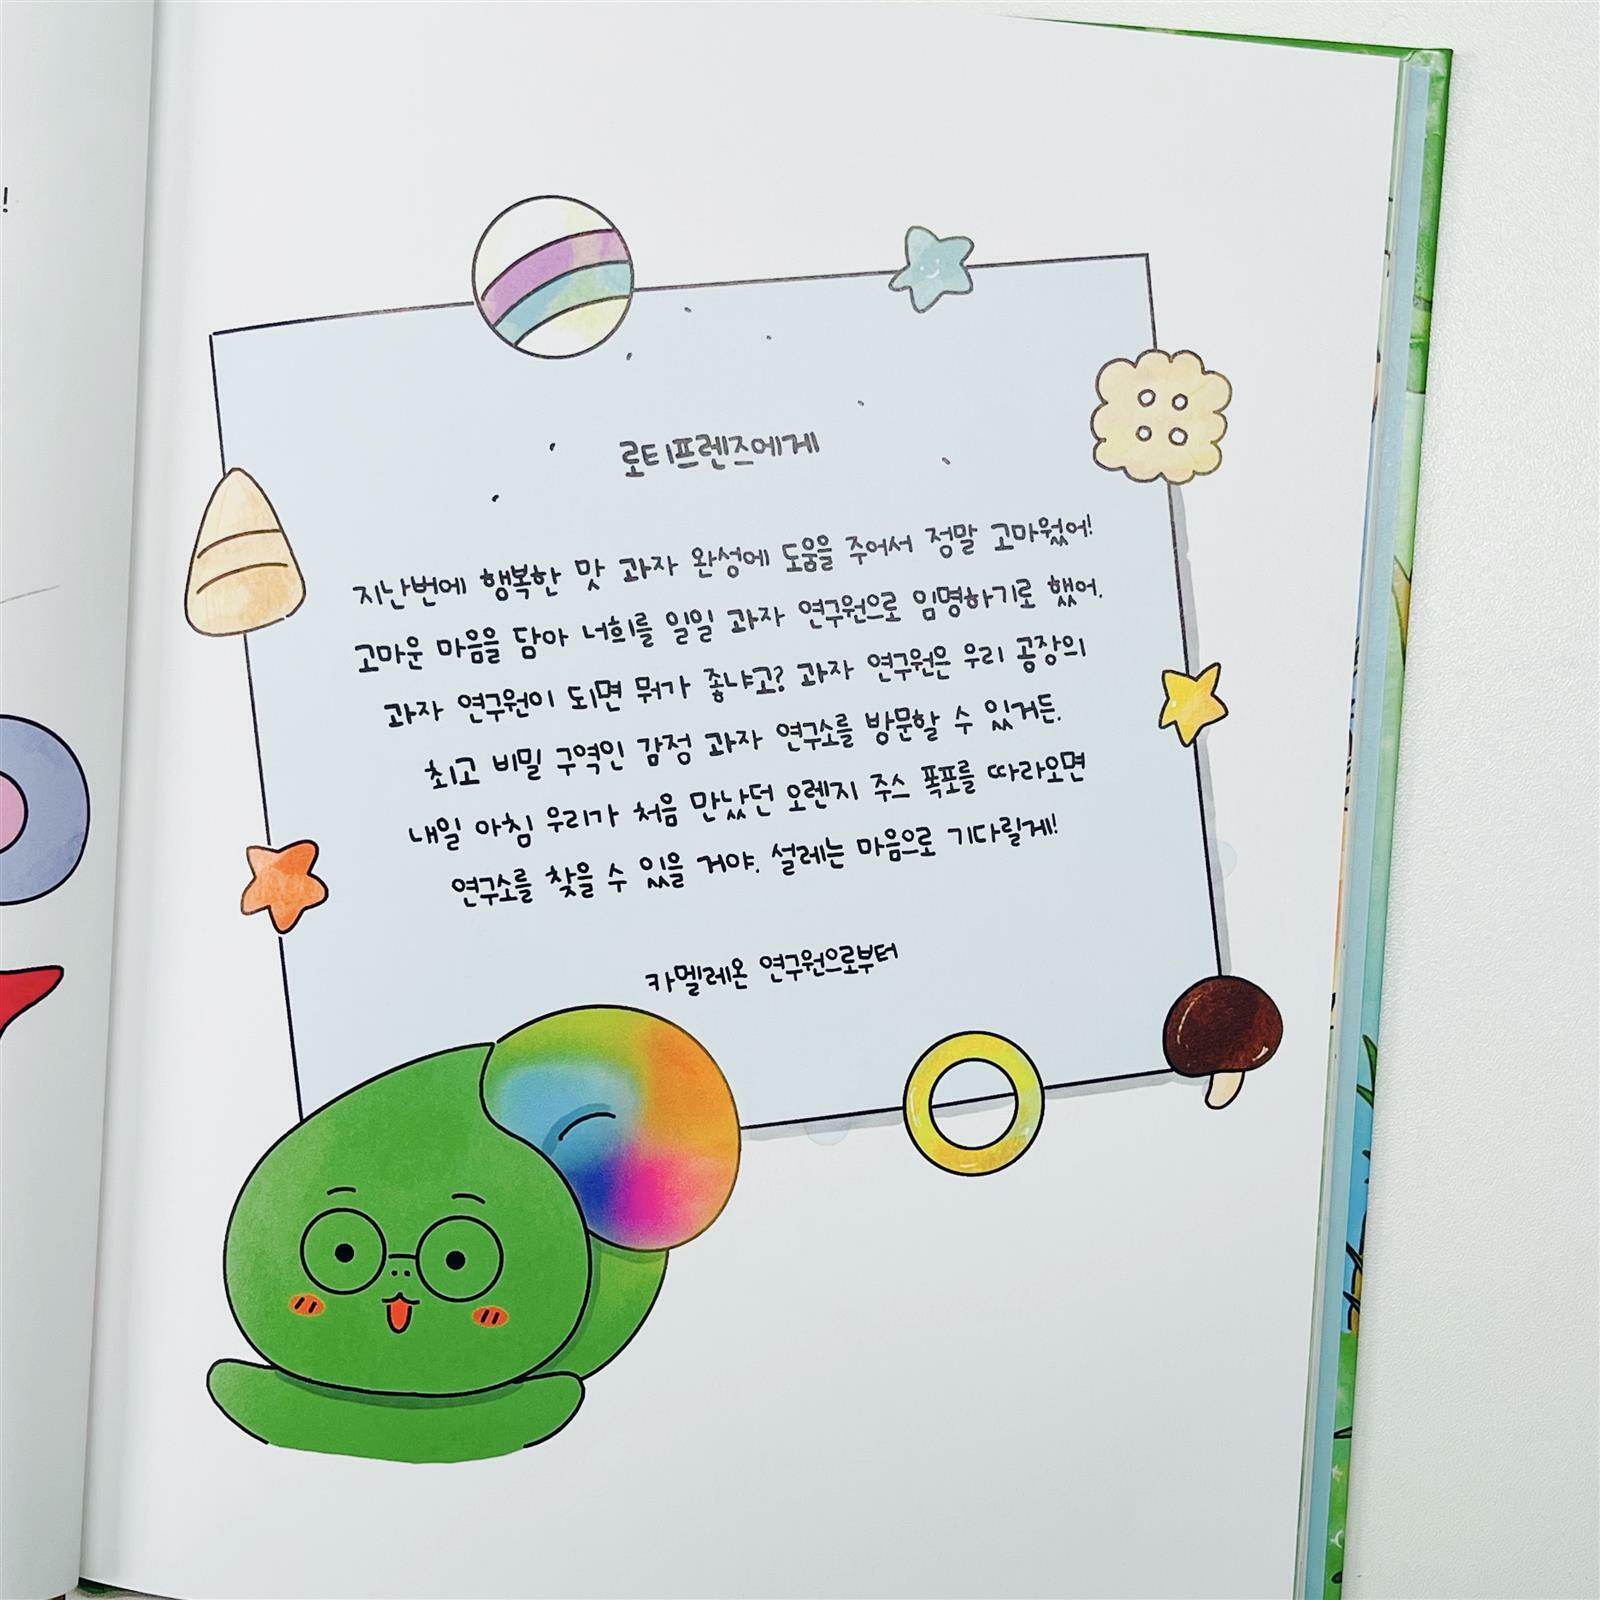 !
로티프렌즈에게
지난번에 행복한 맛 과자 완성에 도움을 주어서 정말 고마웠어!
고마운 마음을 담아 너희를 일일 과자 연구원으로 임명하기로 했어.
과자 연구원이 되면 뭐가 좋냐고? 과자 연구원은 우리 공장의
최고 비밀 구역인 감정 과자 연구소를 방문할 수 있거든.
내일 아침 우리가 처음 만났던 오렌지 주스 폭포를 따라오면
연구소를 찾을 수 있을 거야. 설레는 마음으로 기다릴게!
카멜레온 연구원으로부터